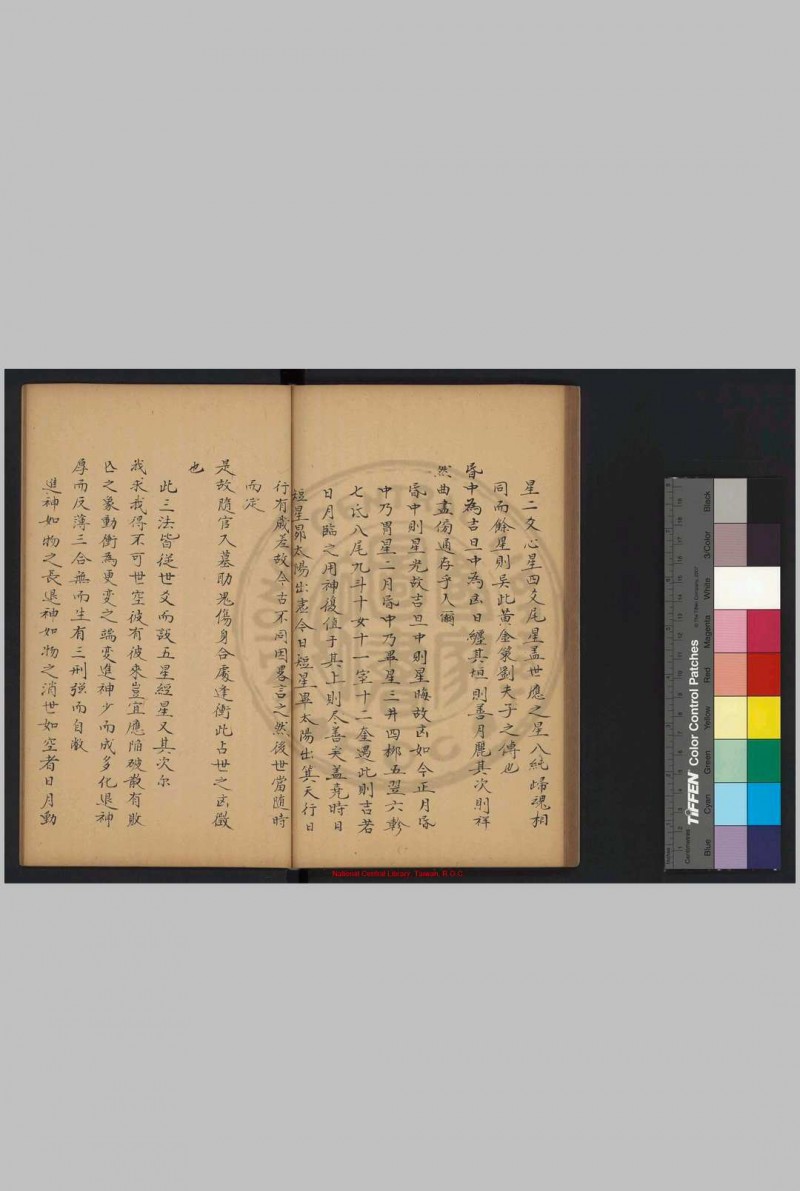 星二爻心星四爻尾星蓋世應之星八純歸魂相
同而餘星則吳此黃金策劉夫子之傳也
昏中為吉旦中為凶日纏其垣則善月麗其次則祥
然曲畫傍通存乎人爾
昏中則星光故吉旦中則星晦故凶如今正月昏
中乃胃星二月昏中乃畢星三井四柳五翌六軫
七氐八尾九斗十女十一室十二奎遇此則吉若
日月臨之用神復值于其上則尽善矣蓋堯時日
短星昴太陽出虛今日短星畢太陽出箕天行日
行有歲差故今古不同因畧言之然後世當随時
而定
是故隨官入墓助鬼傷身合處逢衝此占世之凶徵
也
此三法皆從世爻而設五星經星又其次尔
我求我得不可世空彼有彼來豈宜應陷破散有敗
亡之象動衝為更変之端変進神少而成多化退神
厚而反薄三合無而生有三刑强而自敵
進神如物之長退神如物之消世如空者日月動
National Central Library, Taiwan, R.O.C.
TIFFEN Color Control Patches
© The Tiffen Company, 2007
Inches
Centimetres
Blue
Cyan
Green
Yellow
Red
Magenta
White
3/Color
Black